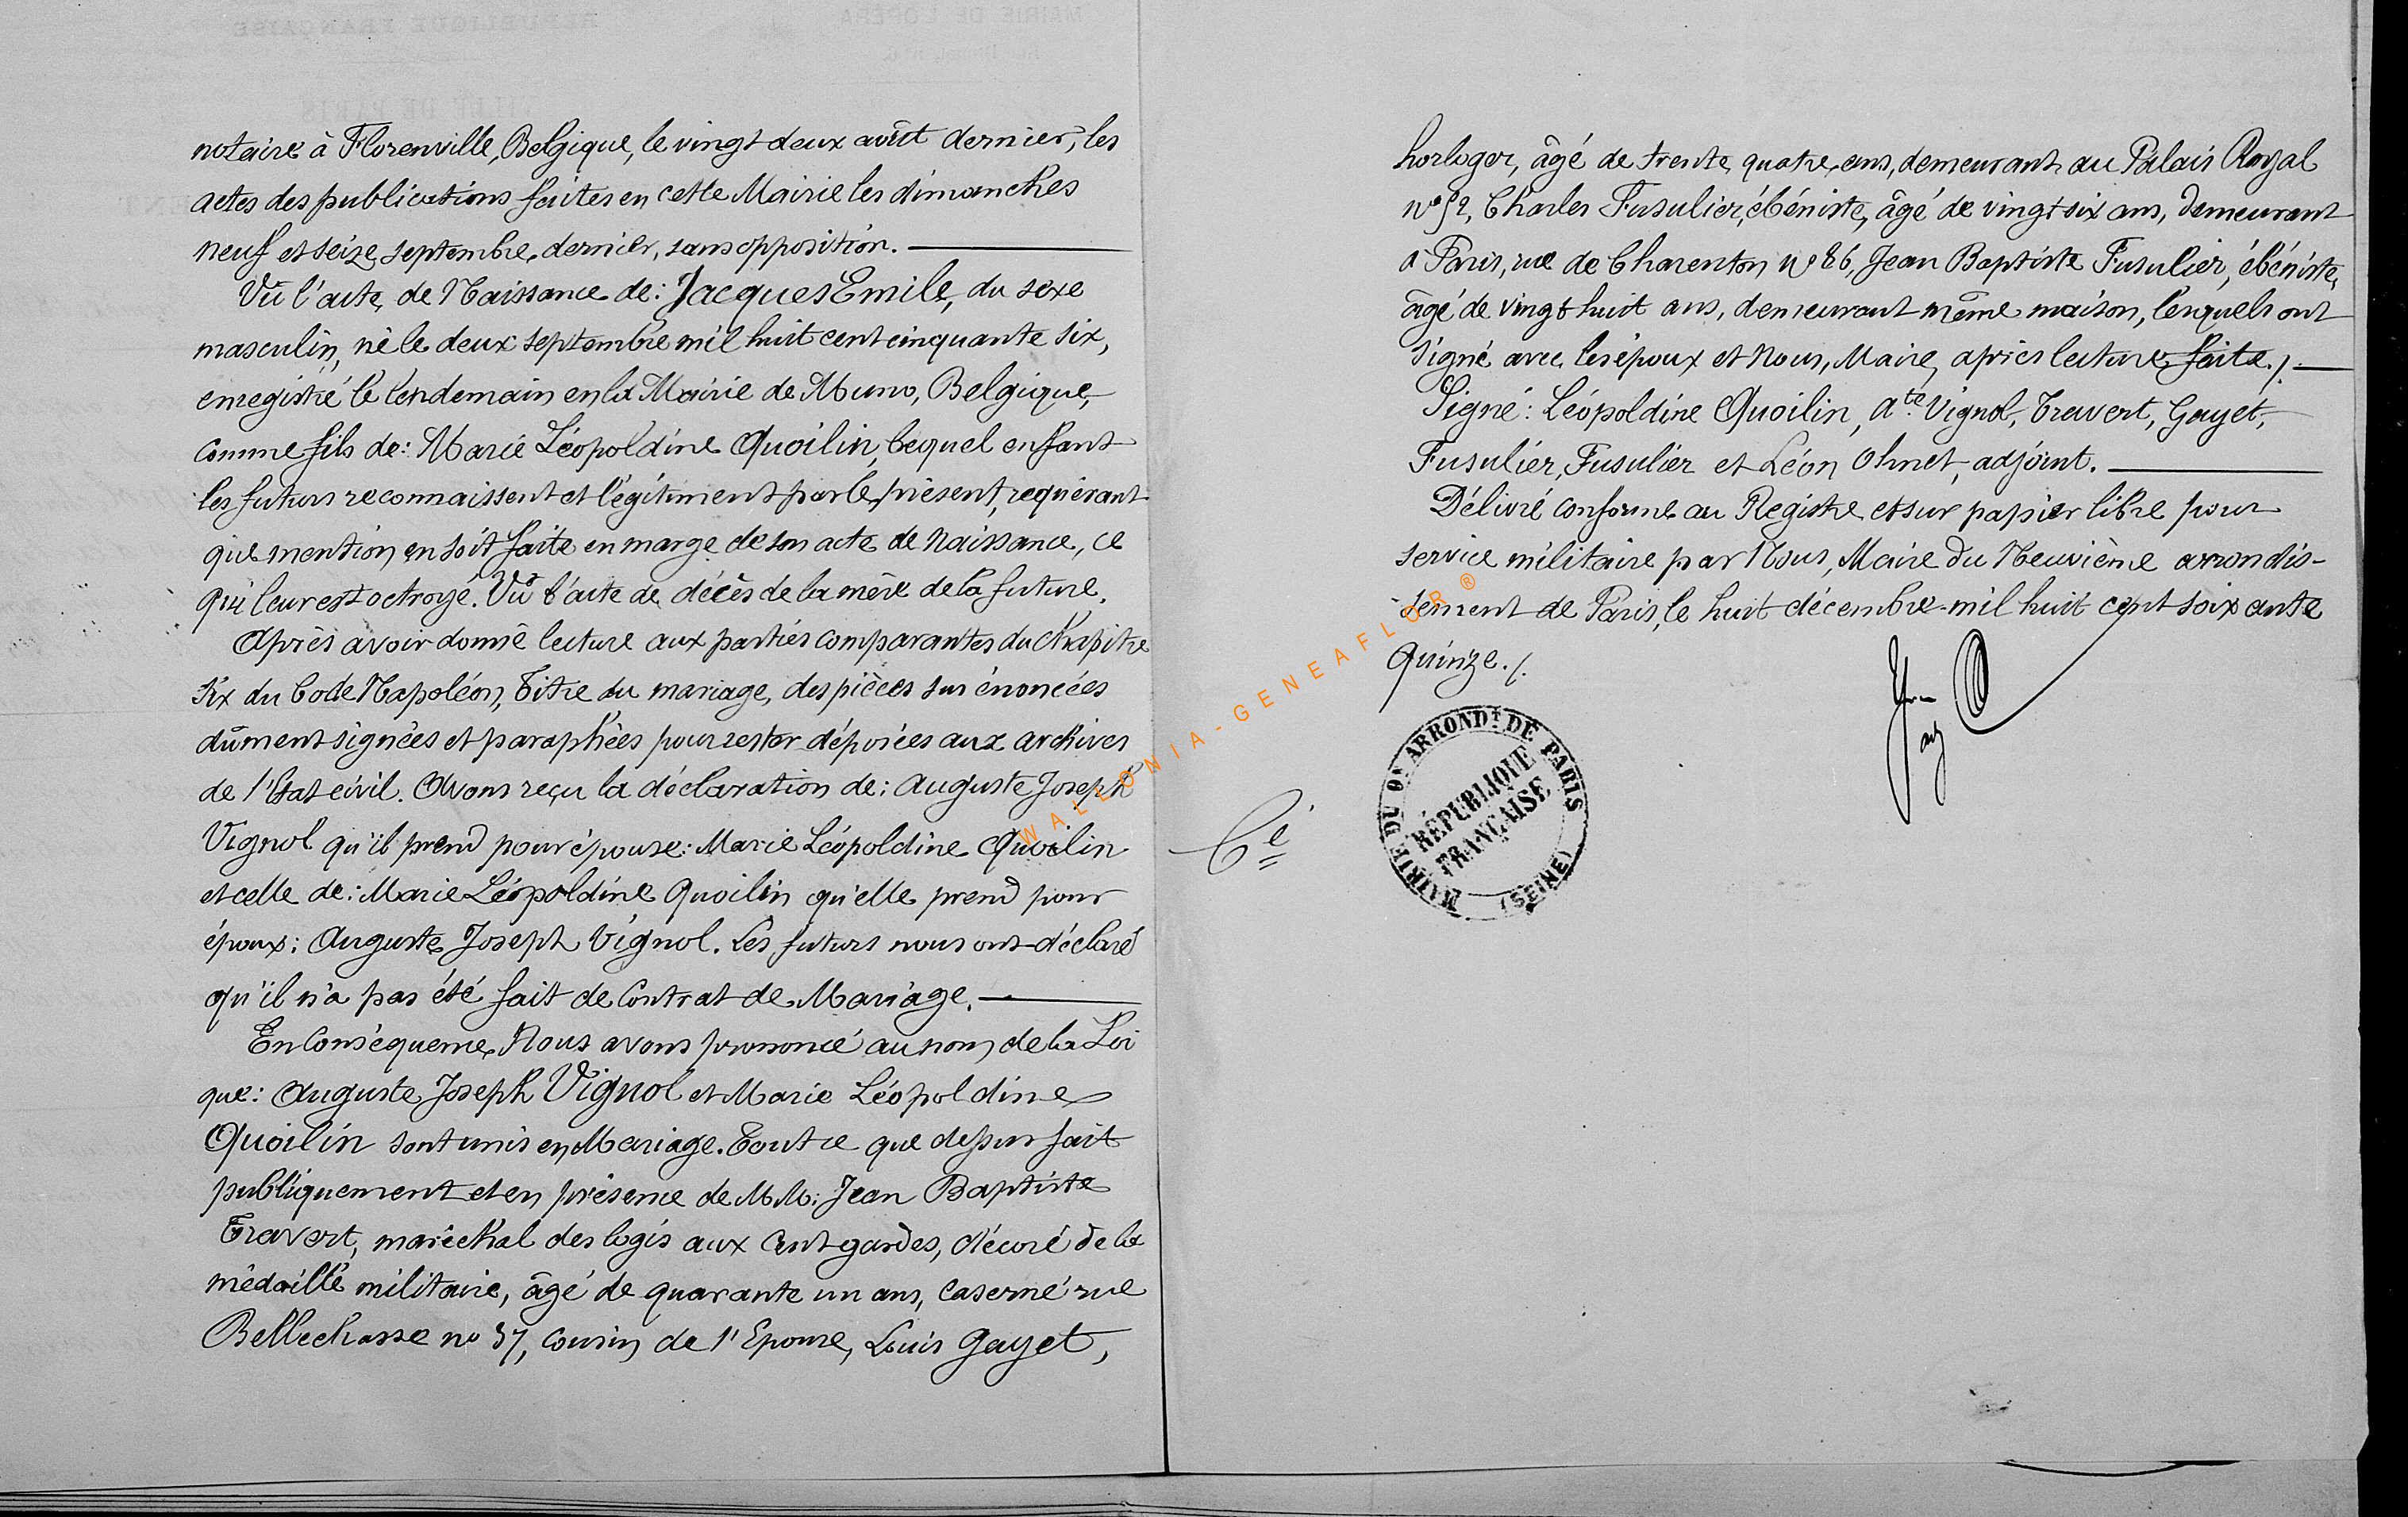 notaire à Florenville, Belgique, le vingt deux août dernier, les
actes des publications faites en cette Mairie les dimanches
neuf et seize septembre dernier, sans opposition.
Vû l'acte de Naissance de: Jacques Emile, du sexe
masculin, né le deux septembre mil huit cent cinquante six,
enregistré le lendemain en la Mairie de Muno, Belgique,
comme fils de: Marie Léopoldine Quoilin, lequel enfant
les futurs reconnaissent et légitiment par le présent, requérant
que mention en soit faite en marge de son acte de naissance, ce
qui leur est octroyé. Vû l'acte de décès de la mère de la future.
Après avoir donné lecture aux parties comparantes du chapitre
six du Code Napoléon, Titre du mariage, des pièces sus énoncées
dûment signées et paraphées pour rester déposées aux archives
de l'Etat civil. Avons reçu la déclaration de: Auguste Joseph
Vignol qu'il prend pour épouse: Marie Léopoldine Quoilin
et celle de: Marie Léopoldine Quoilin qu'elle prend pour
époux: Auguste Joseph Vignol. Les futurs nous ont déclaré
qu'il n'a pas été fait de Contrat de Mariage.
En Conséquence, Nous avons prononcé au nom de la Loi
que: Auguste Joseph Vignol et Marie Léopoldine
Quoilin sont unis en Mariage. Tout ce que dessus fait
publiquement et en présence de MM: Jean Baptiste
Travert, maréchal des logis aux Cent gardes, décoré de la
médaille militaire, âgé de quarante un ans, caserné rue
Bellechasse no 37, cousin de l'Epouse, Louis Gayet,
horloger, âgé de trente quatre ans, demeurant au Palais Royal
no 52, Charles Fusulier, ébéniste, âgé de vingt six ans, demeurant
à Paris, rue de Charenton no 86, Jean Baptiste Fusulier, ébéniste,
âgé de vingt huit ans, demeurant même maison, lesquels ont
signé avec les époux et Nous, Maire, après lecture faite ./.
Signé: Léopoldine Quoilin, Ate Vignol, Travert, Gayet,
Fusulier, Fusulier et Léon Ohnet, adjoint.
Délivré conforme au Registre et sur papier libre pour
service militaire par Nous, Maire du Neuvième arrondis-
sement de Paris, le huit décembre mil huit cent soixante
Quinze ./.
Cé
MAIRIE DU 9e ARRONDt DE PARIS
RÉPUBLIQUE
FRANÇAISE
(SEINE)
WALLONIA-GENEAFLOR®